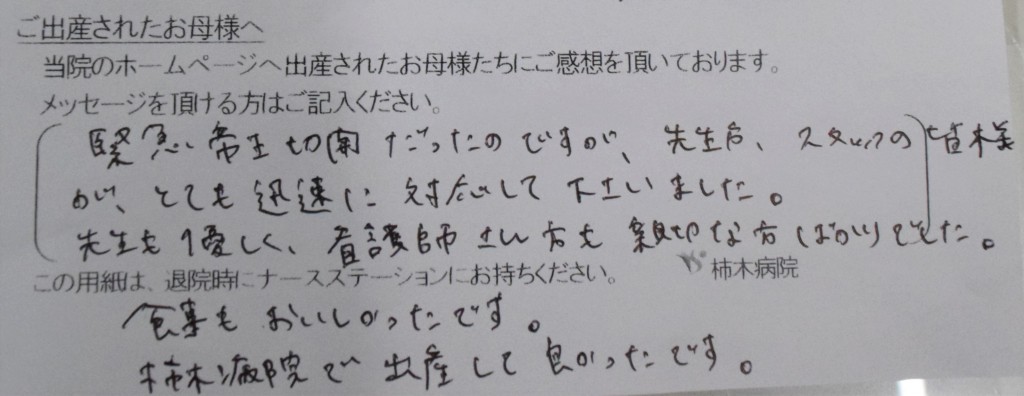 ご出産されたお母様へ
当院のホームページへ出産されたお母様たちにご感想を頂いております。
メッセージを頂ける方はご記入ください。
緊急帝王切開だったのですが、先生方、スタッフの皆様
が、とても迅速に対応して下さいました。
先生も優しく、看護師さん方も親切な方ばかりでした。
この用紙は、退院時にナースステーションにお持ちください。
柿木病院
食事もおいしかったです。
柿木病院で出産して良かったです。